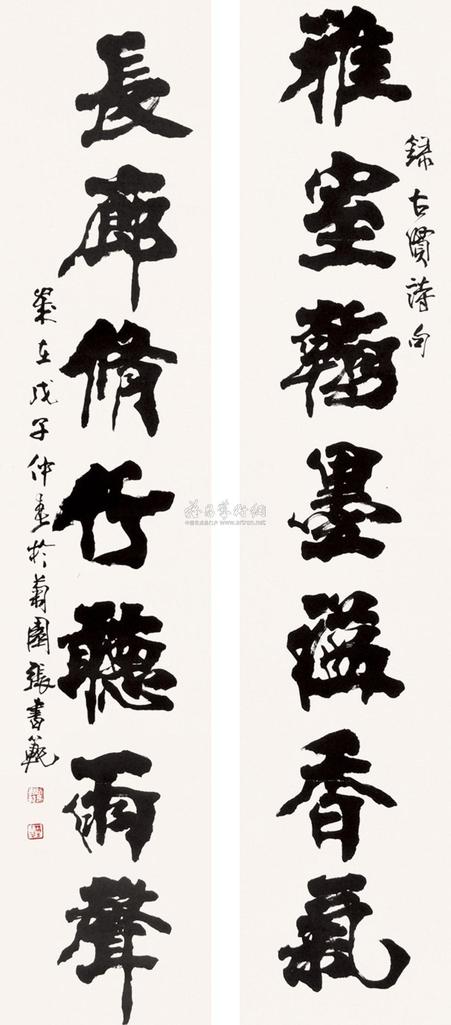 錄古賢詩句
雅室翰墨溢香氣
長廊修竹聽雨聲
歲在戊子仲夏於菊園張書範
雅昌藝術網
www.artron.net